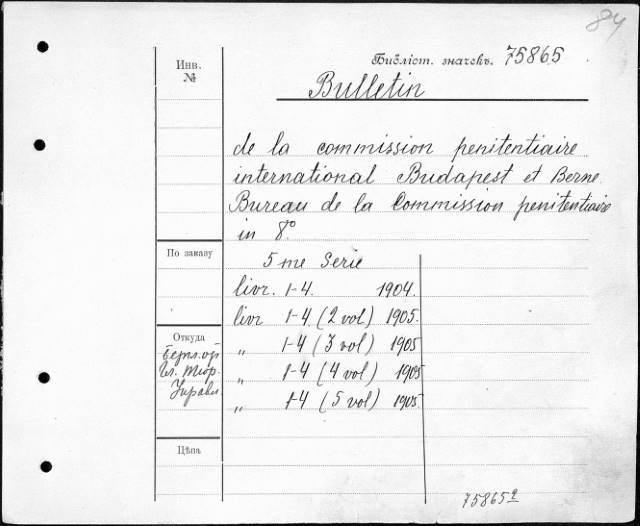 84
Инв.
№
Библіот. значекъ. 75865
Bulletin
de la commission penitentiaire
international Budapest et Berne
Bureau de la Commission penitentiaire
in 8°.
По заказу
5 me Serie
livr. 1-4. 1904.
livr 1-4 (2 vol) 1905.
Откуда
„ 1-4 (3 vol) 1905
„ 1-4 (4 vol) 1905
„ 1-4 (5 vol) 1905.
Гл. Тюр.
Управл
Цѣна
75865а